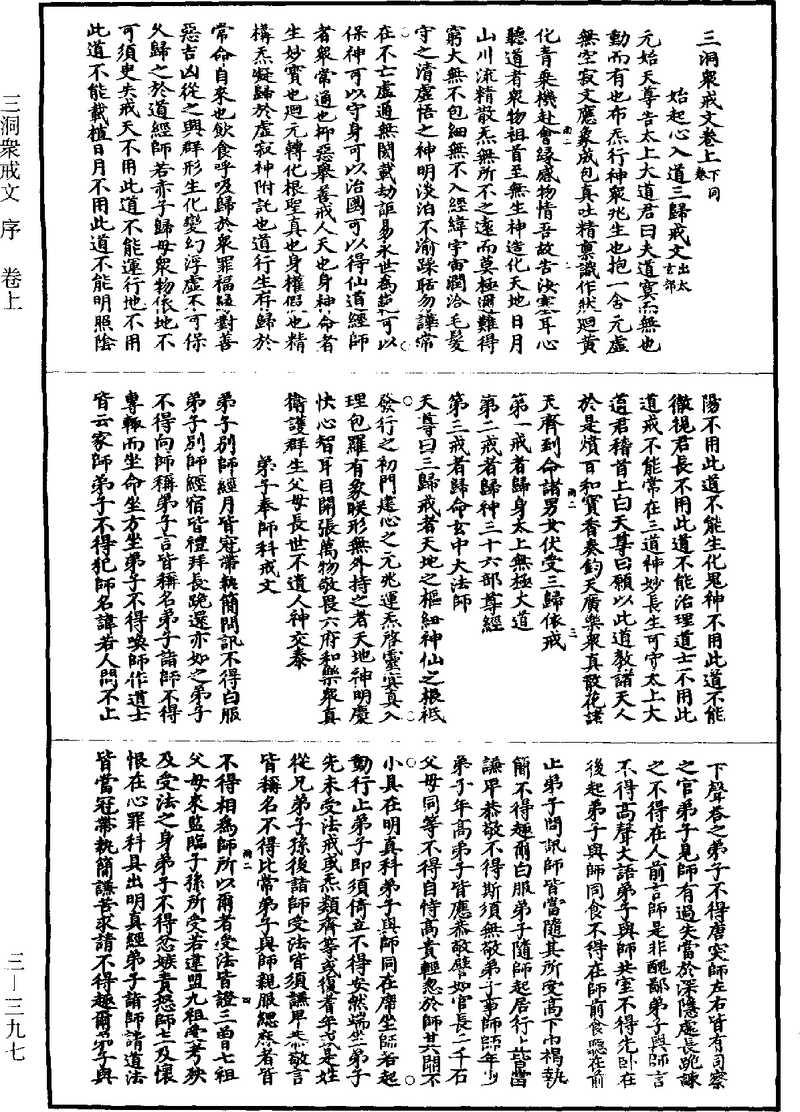 三洞衆戒文卷上下同卷
始起心入道三歸戒文出太玄部
元始天尊告太上大道君曰夫道寞炁無也
動而有也布炁行神衆兆生也抱一含元虛
無空寂文應象成包真吐精禀識作狀廻黃
化青乘機赴會緣感物情吾故告決塞耳心
聽道者衆物祖首至無生神造化天地日月
山川流精散炁無所不之遠而莫極邇難得
窮大無不包細無不入經緯宇宙潤洽毛髮
守之清虛悟之神明淡泊不渝躁聒勿譁常
在不亡虛通無閡載劫詎易永世爲𮎰可以
保神可以守身可以治國可以得仙道經師
者衆常通也抑惡舉善戒人天也身神命者
生妙寶也廻元轉化根聖真也身權假也精
構炁凝歸於虛寂神附託也道行生存歸於
常命自來也飲食呼吸歸於衆罪福經對善
惡吉凶從之與群形生化變幻浮虛不可保
父歸之於道經師若赤子歸母衆物依地不
可須臾失戒天不用此道不能運行地不用
此道不能載植日月不用此道不能明照陰
陽不用此道不能生化鬼神不用此道不能
徹視君長不用此道不能治理道士不用此
道戒不能常在三道神妙長生可守太上大
道君稽首上白天尊曰願以此道教諸天人
於是燌百和寶香奏鈞天廣樂衆真散花諸
天齊到命諸男女伏受三歸依戒
第一戒者歸身太上無極大道
第二戒者歸神三十六部尊經
第三戒者歸命玄中大法師
天尊曰三歸戒者天地之樞紐神仙之根柢
發行之初門建心之元兆運炁啓靈寞真入
理包羅有象聯形無外持之者天地神明慶
快心智耳目開張萬物敬畏六府和樂衆真
衛護群生父母長世不遺人神交泰
弟子奉師科戒文
弟子別師經月皆冠帶執簡問訊不得白服
弟子別師經宿皆禮拜長跪還亦如之弟子
不得向師稱弟子言皆稱名弟子諸師不得
專輒而坐命坐方坐弟子不得喚師作道士
皆云家師弟子不得犯師名諱若人問不止
下聲答之弟子不得唐突師左右皆有司察
之官弟子見師有過失當於深隱處長跪諫
之不得在人前言師是非醜鄙弟子與師言
不得高聲大語弟子與師共室不得先卧在
後起弟子與師同食不得在師前食噫在前
止弟子問訊師皆當隨其所受高下巾褐執
簡不得趣爾白服弟子隨師起居行止皆當
謙卑恭敬不得斯須無敬弟子事師師年少
弟子年高弟子皆應恭敬譬如官長二千石
父母同等不得自恃高貴輕忽於師其閞不
小具在明真科弟子與師同在席坐師若起
動行止弟子即須倚立不得安然端坐弟子
先未受法戒或炁類齊等或復耆年或是姓
從兄弟子孫後諸師受法皆須謙卑恭敬言
皆稱名不得比常弟子與師親服緦麻者皆
不得相爲師所以爾者受法皆證三曾七祖
父母來監臨子孫所受若違盟九祖受考殃
及受法之身弟子不得忿嫉責怒師主及懷
恨在心罪科具出明真經弟子諸師請道法
皆當冠帶執簡謙苦求請不得趣爾弟子與
三洞衆戒文 序 卷上
三—三九七